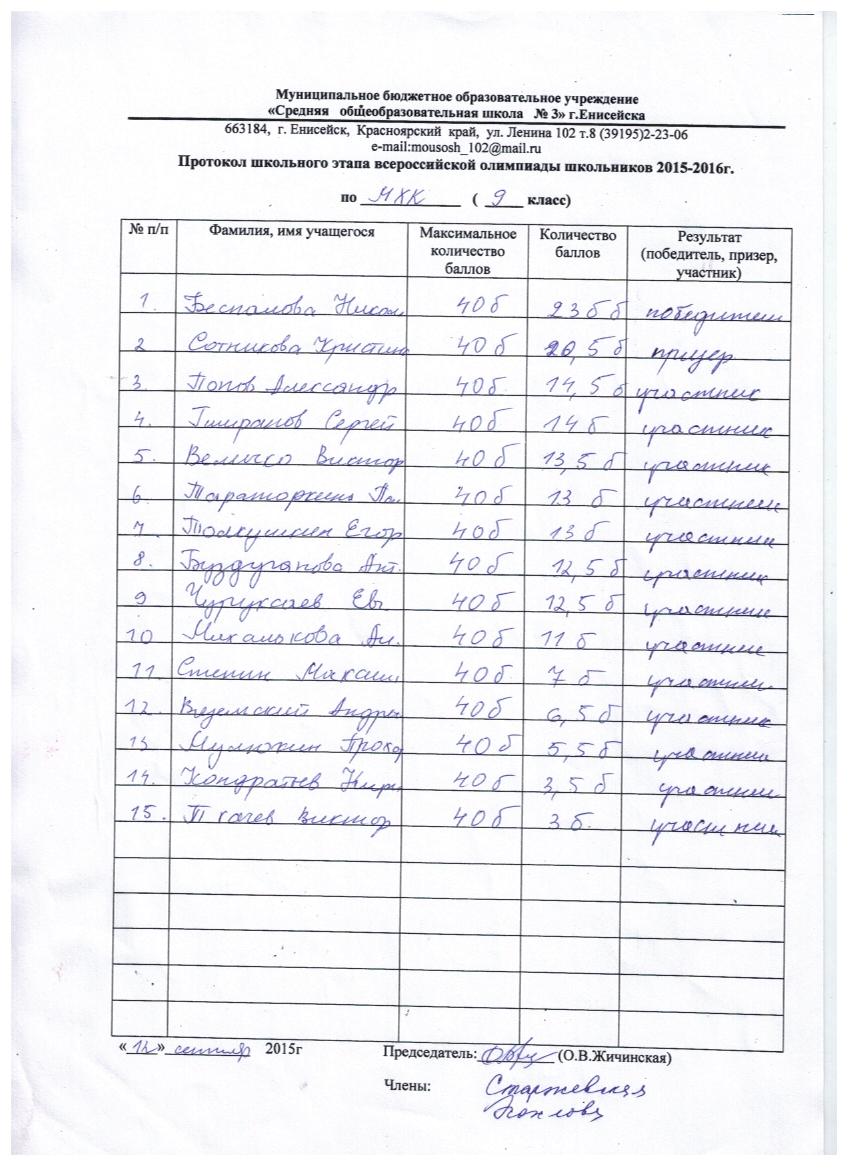 Муниципальное бюджетное образовательное учреждение
«Средняя общеобразовательная школа № 3» г.Енисейска
663184, г. Енисейск, Красноярский край, ул. Ленина 102 т.8 (39195)2-23-06
e-mail:mousosh_102@mail.ru
Протокол школьного этапа всероссийской олимпиады школьников 2015-2016г.
по МХК ( 9 класс)
№ п/п Фамилия, имя учащегося Максимальное количество баллов Количество баллов Результат (победитель, призер, участник)
1. Беспалова 40 б 23 б б победители
2 Сотникова Кристина 40 б 20,5 б призер
3. Попов Александр 40 б. 14,5 б участник
4. Сергей 40 б 14 б участник
5. Величко Виктор 40 б 13,5 б участник
6. 40 б 13 б участник
7. Толкушкин Егор 40 б 13 б участник
8. Буздуганова Ант. 40 б 12,5 б участник
9 Евг. 40 б 12,5 б участник
10 Михалькова Ан. 40 б 11 б участник
11. Степин Максим 40 б. 7 б участник
12. Вяземский Андрей 40 б 6,5 б участник
13. Мулюкин Прохор 40 б 5,5 б участник
14. Кондратьев Кир 40 б 3,5 б участник
15. Ткачев Виктор 40 б 3 б. участник
«12» сентября 2015г Председатель: (О.В.Жичинская)
Члены: Старжевская
Козлова